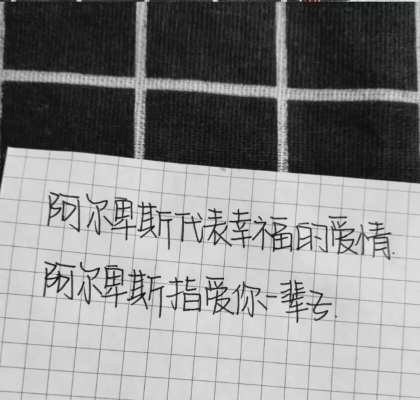 阿尔卑斯代表幸福的爱情.
阿尔卑斯指爱你一辈子.